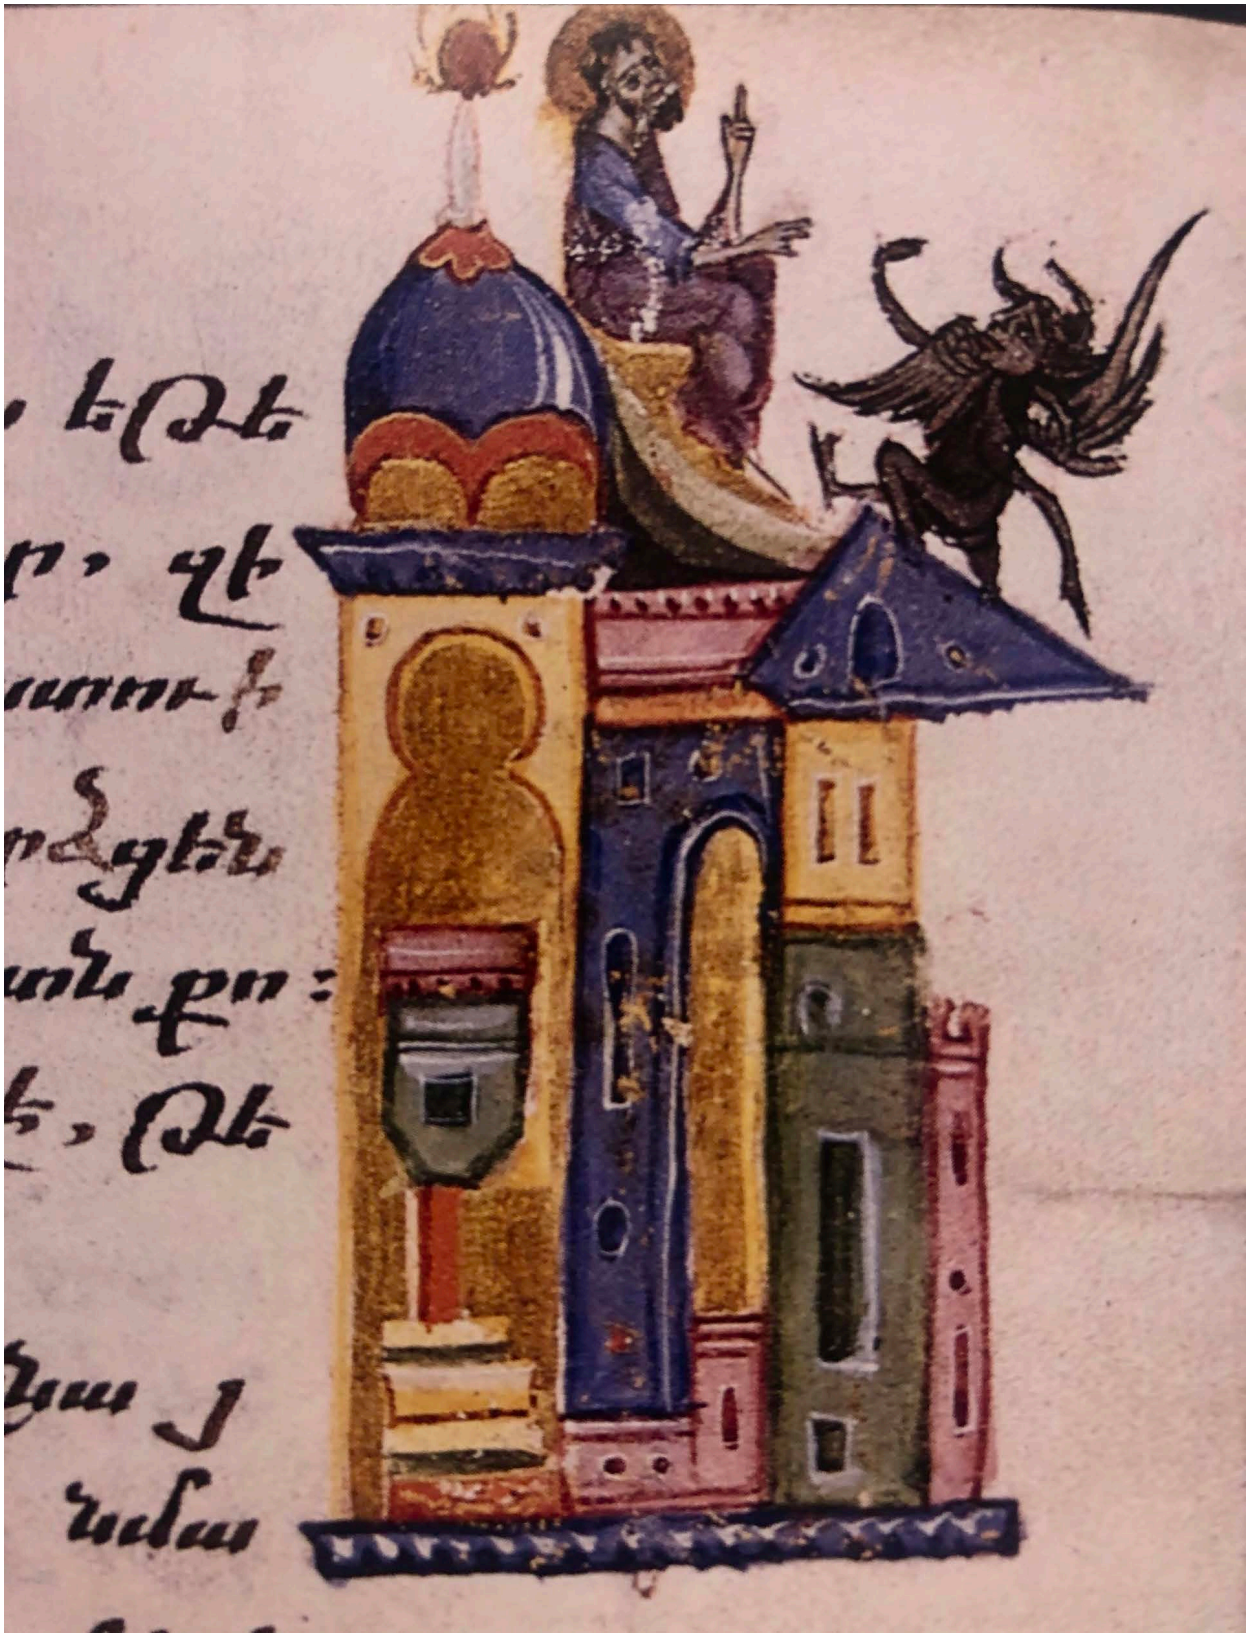 եթե
ր, զի
ատու ի
րձցեն
տն քո։
է, թե
նա յ
նմա